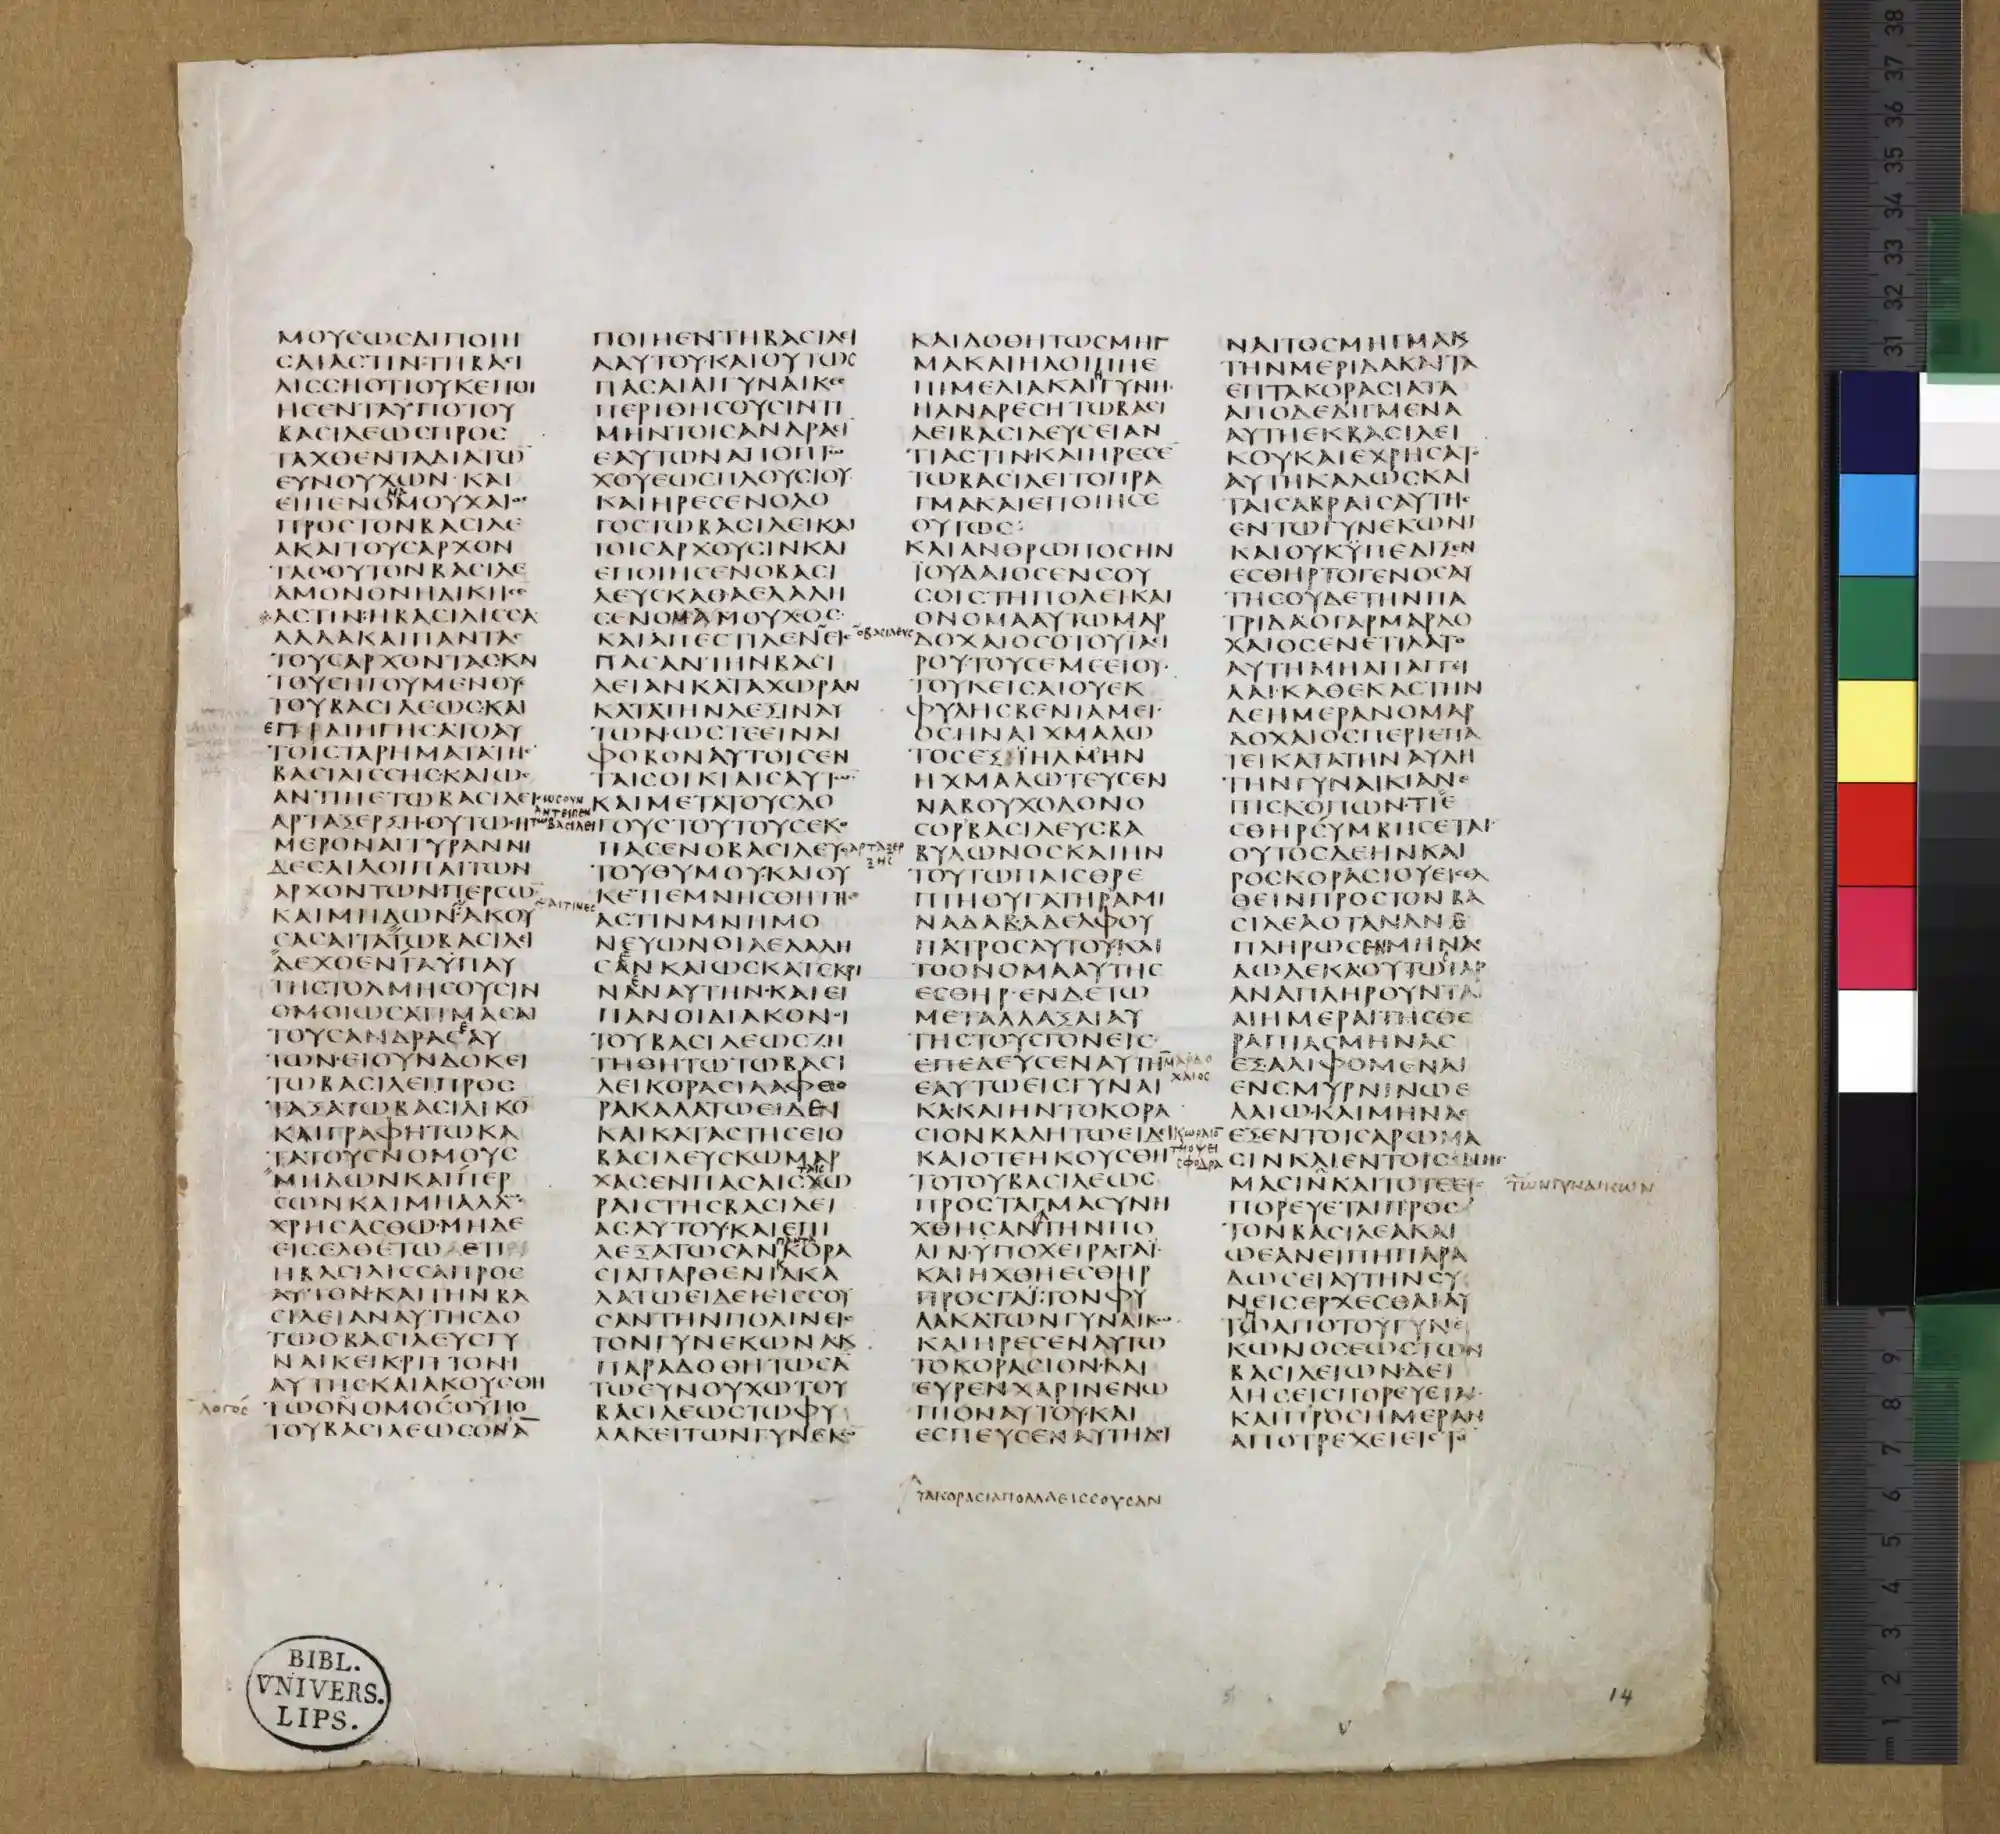 ΜΟΥΣΩΣΔΙΠΟΙΗ
ΣΑΙΑΣΤΙΝ·ΤΗΒΑΣΙ
ΛΙΣΣΗΟΤΙΟΥΚΕΠΟΙ
ΗΣΕΝΤΑΥΠΟΤΟΥ
ΒΑΣΙΛΕΩΣΠΡΟΣ
ΤΑΧΘΕΝΤΑΔΙΑΤΩ̅
ΕΥΝΟΥΧΩΝ·ΚΑΙ
ΕΙΠΕΝΟΜΟΥΧΑΙΟΣ
ΠΡΟΣΤΟΝΒΑΣΙΛΕ
ΑΚΑΙΤΟΥΣΑΡΧΟΝ
ΤΑΣΟΥΤΟΝΒΑΣΙΛΕ
ΑΜΟΝΟΝΗΔΙΚΗΣΕ
ΑΣΤΙΝ·ΗΒΑΣΙΛΙΣΣΑ
ΑΛΛΑΚΑΙΠΑΝΤΑΣ
ΤΟΥΣΑΡΧΟΝΤΑΣΚΑΙ
ΤΟΥΣΗΓΟΥΜΕΝΟΥΣ
ΤΟΥΒΑΣΙΛΕΩΣ·ΚΑΙ
ΕΠΕΙΔΙΗΓΗΣΑΤΟΑΥ
ΤΟΙΣΤΑΡΗΜΑΤΑΤΗΣ
ΒΑΣΙΛΙΣΣΗΣ·ΚΑΙΩΣ
ΑΝΤΙΠΕΤΩΒΑΣΙΛΕΙ
ΚΩΣΟΥΝ
ΑΝΤΕΙΠΕΝ
ΤΩΒΑΣΙΛΕΙ
ΑΡΤΑΞΕΡΞΗ·ΟΥΤΩΣΗ
ΜΕΡΟΝΑΙΤΥΡΑΝΝΙ
ΔΕΣΑΙΛΟΙΠΑΙΤΩΝ
ΑΡΧΟΝΤΩΝ·ΠΕΡΣΩ̅
ΚΑΙΜΗΔΩΝ·ΑΚΟΥ
ΑΙΤΙΝΕΣ
ΣΑΣΑΙΤΑΤΩΒΑΣΙΛΕΙ
ΛΕΧΘΕΝΤΑΥΠΑΥ
ΤΗΣΤΟΛΜΗΣΟΥΣΙΝ
ΟΜΟΙΩΣΑΤΙΜΑΣΑΙ
ΤΟΥΣΑΝΔΡΑΣΑΥ
ΤΩΝ·ΕΙΟΥΝΔΟΚΕΙ
ΤΩΒΑΣΙΛΕΙΠΡΟΣ
ΤΑΞΑΤΩΒΑΣΙΛΙΚΟ̅
ΚΑΙΓΡΑΦΗΤΩΚΑ
ΤΑΤΟΥΣΝΟΜΟΥΣ
ΜΗΔΩΝΚΑΙΠΕΡ
ΣΩΝΚΑΙΜΗΑΛΛΩΣ
ΧΡΗΣΑΣΘΩ·ΜΗΔΕ
ΕΙΣΕΛΘΕΤΩ ΕΤΙ
ΗΒΑΣΙΛΙΣΣΑΠΡΟΣ
ΑΥΤΟΝ·ΚΑΙΤΗΝΒΑ
ΣΙΛΕΙΑΝΑΥΤΗΣΔΟ
ΤΩΟΒΑΣΙΛΕΥΣΓΥ
ΝΑΙΚΕΙΚΡΙΤΤΟΝΙ
ΑΥΤΗΣ·ΚΑΙΑΚΟΥΣΘΗ
ΛΟΓΟΣ
ΤΩΟΝΟΜΟΣΟΥΠΟ
ΤΟΥΒΑΣΙΛΕΩΣΟΝΑ̅
ΠΟΙΗΕΝΤΗΒΑΣΙΛΕΙ
ΑΑΥΤΟΥ·ΚΑΙΟΥΤΩΣ
ΠΑΣΑΙΑΙΓΥΝΑΙΚΕΣ
ΠΕΡΙΘΗΣΟΥΣΙΝΤΙ
ΜΗΝΤΟΙΣΑΝΔΡΑΣΙ
ΕΑΥΤΩΝΑΠΟΠΤΩ
ΧΟΥΕΩΣΠΛΟΥΣΙΟΥ·
ΚΑΙΗΡΕΣΕΝΟΛΟ
ΓΟΣΤΩΒΑΣΙΛΕΙΚΑΙ
ΤΟΙΣΑΡΧΟΥΣΙΝΚΑΙ
ΕΠΟΙΗΣΕΝΟΒΑΣΙ
ΛΕΥΣΚΑΘΑΕΛΑΛΗ
ΣΕΝΟΜΑΜΟΥΧΟΣ·
ΚΑΙΑΠΕΣΤΙΛΕΝΕΙΣ
ΟΒΑΣΙΛΕΥΣ
ΠΑΣΑΝΤΗΝΒΑΣΙ
ΛΕΙΑΝΚΑΤΑΧΩΡΑΝ
ΚΑΤΑΤΗΝΛΕΞΙΝΑΥ
ΤΩΝ·ΩΣΤΕΕΙΝΑΙ
ΦΟΒΟΝΑΥΤΟΙΣΕΝ
ΤΑΙΣΟΙΚΙΑΙΣΑΥΤΩ̅·
ΚΑΙΜΕΤΑΤΟΥΣΛΟ
ΓΟΥΣΤΟΥΤΟΥΣΕΚΟ
ΠΑΣΕΝΟΒΑΣΙΛΕΥΣ
ΑΡΤΑΞΕΡ
ΞΗΣ
ΤΟΥΘΥΜΟΥ·ΚΑΙΟΥ
ΚΕΤΙΕΜΝΗΣΘΗΤΗΣ
ΑΣΤΙΝΜΝΗΜΟ
ΝΕΥΩΝΟΙΑΕΛΑΛΗ
ΣΑΝΚΑΙΩΣΚΑΤΕΚΡΙ
ΝΑΝΑΥΤΗΝ·ΚΑΙΕΙ
ΠΑΝΟΙΔΙΑΚΟΝΟΙ
ΤΟΥΒΑΣΙΛΕΩΣΖΗ
ΤΗΘΗΤΩΤΩΒΑΣΙ
ΛΕΙΚΟΡΑΣΙΑΑΦΘΟ
ΡΑΚΑΛΑΤΩΕΙΔΕΙ
ΚΑΙΚΑΤΑΣΤΗΣΕΙΟ
ΒΑΣΙΛΕΥΣΚΩΜΑΡ
ΤΑΙΣ
ΧΑΣΕΝΠΑΣΑΙΣΧΩ
ΡΑΙΣΤΗΣΒΑΣΙΛΕΙ
ΑΣΑΥΤΟΥ·ΚΑΙΕΠΙ
ΠΑΝΤΑ
ΛΕΞΑΤΩΣΑΝΚΟΡΑ
ΣΙΑΠΑΡΘΕΝΙΑΚΑ
ΛΑΤΩΕΙΔΕΙΕΙΣΣΟΥ
ΣΑΝΤΗΝΠΟΛΙΝΕΙΣ
ΤΟΝΓΥΝΕΚΩΝΑΚ
ΠΑΡΑΔΟΘΗΤΩΣΑ̅
ΤΩΕΥΝΟΥΧΩΤΟΥ
ΒΑΣΙΛΕΩΣΤΩΦΥ
ΛΑΚΕΙΤΩΝΓΥΝΕΚΩ̅
ΚΑΙΔΟΘΗΤΩΣΜΗΓ
ΜΑΚΑΙΗΛΟΙΠΗΕ
ΠΙΜΕΛΙΑΚΑΙΓΥΝΗ·
ΗΑΝΑΡΕΣΗΤΩΒΑΣΙ
ΛΕΙΒΑΣΙΛΕΥΣΕΙΑΝ
ΤΙΑΣΤΙΝ·ΚΑΙΗΡΕΣΕ̅
ΤΩΒΑΣΙΛΕΙΤΟΠΡΑ
ΓΜΑΚΑΙΕΠΟΙΗΣΕ
ΟΥΤΩΣ:
ΚΑΙΑΝΘΡΩΠΟΣΗΝ
ΪΟΥΔΑΙΟΣΕΝΣΟΥ
ΣΟΙΣΤΗΠΟΛΕΙΚΑΙ
ΟΝΟΜΑΑΥΤΩΜΑΡ
ΔΟΧΑΙΟΣΟΤΟΥΪΑΕΙ
ΡΟΥ·ΤΟΥΣΕΜΕΕΙΟΥ·
ΤΟΥΚΕΙΣΑΙΟΥΕΚ
ΦΥΛΗΣΒΕΝΙΑΜΕΙ·
ΟΣΗΝΑΙΧΜΑΛΩ
ΤΟΣΕΞΪΗΛΜΗΝ
ΗΧΜΑΛΩΤΕΥΣΕΝ
ΝΑΒΟΥΧΟΔΟΝΟ
ΣΟΡΒΑΣΙΛΕΥΣΒΑ
ΒΥΛΩΝΟΣΚΑΙΗΝ
ΤΟΥΤΩΠΑΙΣΘΡΕ
ΠΤΗΘΥΓΑΤΗΡΑΜΙ
ΝΑΔΑΒΑΔΕΛΦΟΥ
ΠΑΤΡΟΣΑΥΤΟΥ·ΚΑΙ
ΤΟΟΝΟΜΑΑΥΤΗΣ
ΕΣΘΗΡ·ΕΝΔΕΤΩ
ΜΕΤΑΛΛΑΞΑΙΑΥ
ΤΗΣΤΟΥΣΓΟΝΕΙΣ·
ΕΠΕΔΕΥΣΕΝΑΥΤΗ̅
ΜΑΡΔΟ
ΧΑΙΟΣ
ΕΑΥΤΩΕΙΣΓΥΝΑΙ
ΚΑ·ΚΑΙΗΝΤΟΚΟΡΑ
ΣΙΟΝΚΑΛΗΤΩΕΙΔΕΙ
ΚΩΡΑΙΟ̅
ΤΗΟΨΕΙ
ΣΦΟΔΡΑ
ΚΑΙΟΤΕΗΚΟΥΣΘΗ
ΤΟΤΟΥΒΑΣΙΛΕΩΣ
ΠΡΟΣΤΑΓΜΑΣΥΝΗ
ΧΘΗΣΑΝΤΗΝΠΟ
ΛΙΝ·ΥΠΟΧΕΙΡΑΓΑΪ·
ΚΑΙΗΧΘΗΕΣΘΗΡ
ΠΡΟΣΓΑΪ·ΤΟΝΦΥ
ΛΑΚΑΤΩΝΓΥΝΑΙΚΩ̅
ΚΑΙΗΡΕΣΕΝΑΥΤΩ
ΤΟΚΟΡΑΣΙΟΝ·ΚΑΙ
ΕΥΡΕΝΧΑΡΙΝΕΝΩ
ΠΙΟΝΑΥΤΟΥ·ΚΑΙ
ΕΣΠΕΥΣΕΝΑΥΤΗΔΟΥ
ΤΑΚΟΡΑΣΙΑΠΟΛΛΑΕΙΣΣΟΥΣΑΝ
ΝΑΙΤΟΣΜΗΓΜΑΚΑΙ
ΤΗΝΜΕΡΙΔΑΚΑΙΤΑ
ΕΠΤΑΚΟΡΑΣΙΑΤΑ
ΑΠΟΔΕΔΙΓΜΕΝΑ
ΑΥΤΗΕΚΒΑΣΙΛΕΙ
ΚΟΥΚΑΙΕΧΡΗΣΑΤΟ
ΑΥΤΗΚΑΛΩΣΚΑΙ
ΤΑΙΣΑΒΡΑΙΣΑΥΤΗΣ
ΕΝΤΩΓΥΝΕΚΩΝΙ
ΚΑΙΟΥΚΫΠΕΔΙΞΕΝ
ΕΣΘΗΡΤΟΓΕΝΟΣΑΥ
ΤΗΣΟΥΔΕΤΗΝΠΑ
ΤΡΙΔΑΟΓΑΡΜΑΡΔΟ
ΧΑΙΟΣΕΝΕΤΙΛΑΤΟ
ΑΥΤΗΜΗΑΠΑΓΓΕΙ
ΛΑΙ·ΚΑΘΕΚΑΣΤΗΝ
ΔΕΗΜΕΡΑΝΟΜΑΡ
ΔΟΧΑΙΟΣΠΕΡΙΕΠΑ
ΤΕΙΚΑΤΑΤΗΝΑΥΛΗ
ΤΗΝΓΥΝΑΙΚΙΑΝΕ
ΠΙΣΚΟΠΩΝ·ΤΙΕ
ΣΘΗΡΣΥΜΒΗΣΕΤΑΙ·
ΟΥΤΟΣΔΕΗΝΚΑΙ
ΡΟΣΚΟΡΑΣΙΟΥΕΙΣΕΛ
ΘΕΙΝΠΡΟΣΤΟΝΒΑ
ΣΙΛΕΑΟΤΑΝΑΝ
ΠΛΗΡΩΣΕΝΜΗΝΑΣ
ΔΩΔΕΚΑΟΥΤΩΓΑΡ
ΑΝΑΠΛΗΡΟΥΝΤΑΙ
ΑΙΗΜΕΡΑΙΤΗΣΘΕ
ΡΑΠΙΑΣΜΗΝΑΣ
ΕΞΑΛΙΦΟΜΕΝΑΙ
ΕΝΣΜΥΡΝΙΝΩΕ
ΛΑΙΩ·ΚΑΙΜΗΝΑΣ
ΕΞΕΝΤΟΙΣΑΡΩΜΑ
ΣΙΝΚΑΙΕΝΤΟΙΣ
ΜΑΣΙΝΚΑΙΤΟΤΕΕΙΣ
ΤΩΝΓΥΝΑΙΚΩΝ
ΠΟΡΕΥΕΤΑΙΠΡΟΣ
ΤΟΝΒΑΣΙΛΕΑΚΑΙ
ΩΕΑΝΕΙΠΗΠΑΡΑ
ΔΩΣΕΙΑΥΤΗΝΣΥ
ΝΕΙΣΕΡΧΕΣΘΑΙΑΥ
ΤΩΑΠΟΤΟΥΓΥΝΕ
ΚΩΝΟΣΕΩΣΤΩΝ
ΒΑΣΙΛΕΙΩΝ·ΔΕΙ
ΛΗΣΕΙΣΠΟΡΕΥΕΤΑΙ·
ΚΑΙΠΡΟΣΗΜΕΡΑΝ
ΑΠΟΤΡΕΧΕΙΕΙΣΤΟ̅
BIBL.
VNIVERS.
LIPS.
V
14